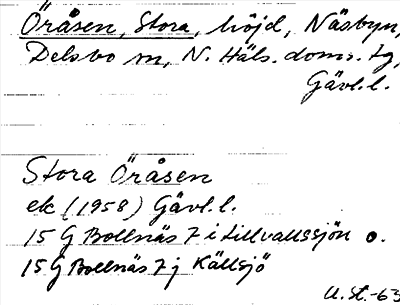 Öråsen, Stora, höjd, Näsbyn,
Delsbo sn, N. Häls. doms. tg,
Gävl. l.
Stora Öråsen
ek (1958) Gävl. l.
15 G Bollnäs 7 i Lillvallssjön o.
15 G Bollnäs 7 j Källsjö
U. St. -63